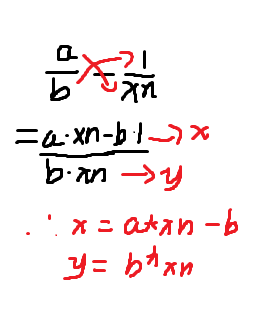 a/b - 1/xn
= a·xn-b·1 → x
b·xn → y
∴ x = a*xn - b
y = b*xn